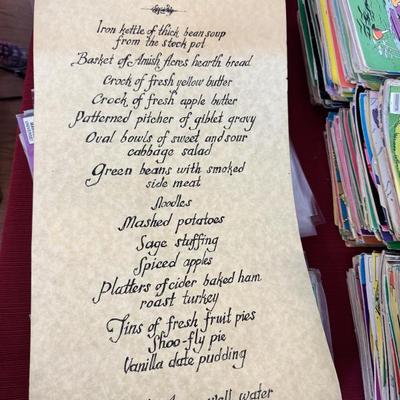 Iron kettle of thick bean soup
from the stock pot
Basket of Amish Acres hearth bread
Crock of fresh yellow butter
Crock of fresh apple butter
Patterned pitcher of giblet gravy
Oval bowls of sweet and sour
cabbage salad
Green beans with smoked
side meat
Noodles
Mashed potatoes
Sage stuffing
Spiced apples
Platters of cider baked ham
roast turkey
Tins of fresh fruit pies
Shoo-fly pie
Vanilla date pudding
well water